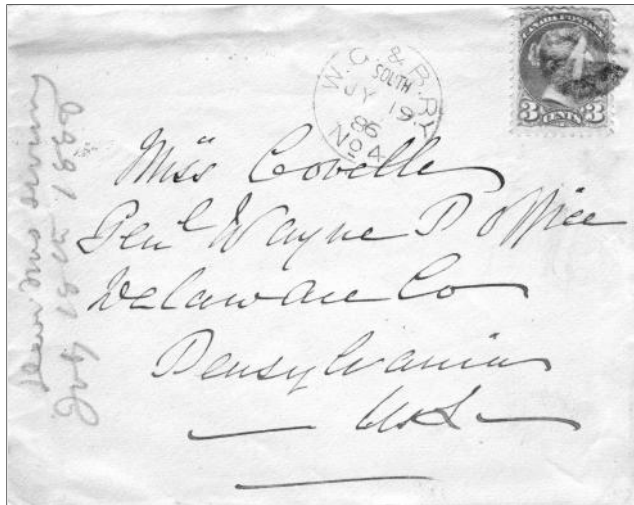 CANADA POSTAGE
3 CENTS 3
W.G. & B.RY
SOUTH
JY 19
86
No 4
Miss Covelle
Genl Wayne P Office
Delaware Co
Pensylvania
U.S
July 1886